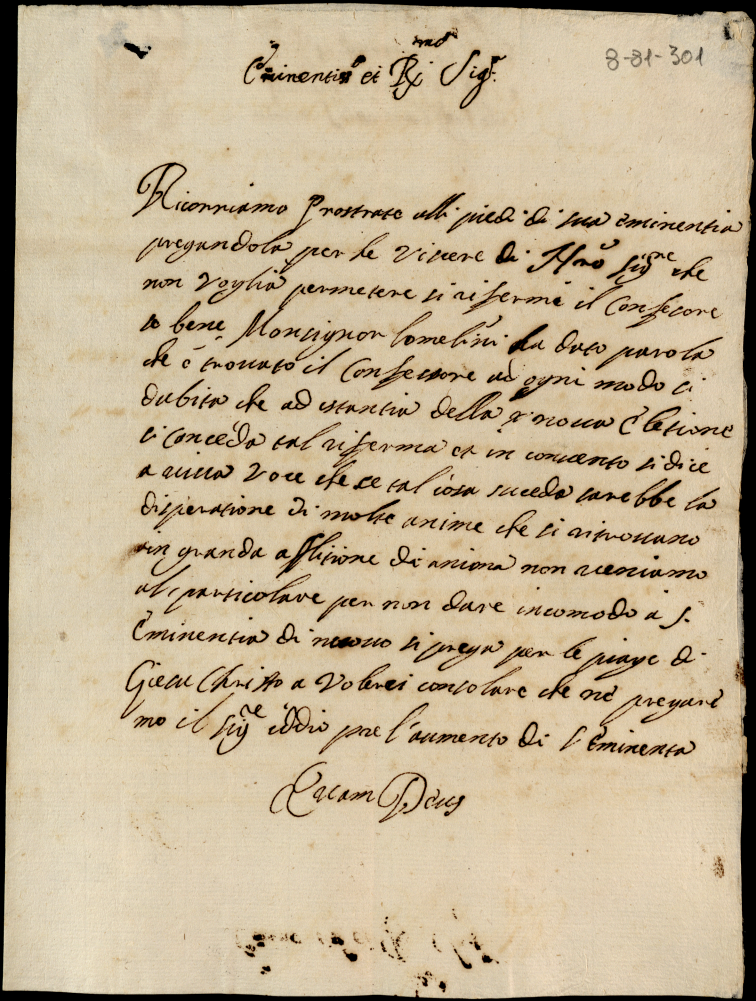 8-81-301
Eminentis.o et R.mo Sig.r
Ricorriamo Prostrate alli piedi di sua eminentia
pregandola per le viscere di Nro Sig.re che
non voglia permetere si rifermi il Confesore
se bene Monsignor lomelini ha dato parola
che è trovato il Confessore ad ogni modo si
dubita che ad istantia della nova Eletione
si conceda tal riferma et in convento si dice
a viva voce che se tal cosa suceda sarebbe la
disperatione di molte anime che si ritrovano
in granda aflitione di anima non veniamo
al particolare per non dare incomodo a S.
Eminentia di nuovo si prega per le piage di
Giesu Christo a volerci consolare che ne pregare
mo il Sig.re iddio per l'aumento di S Eminenta
Deus